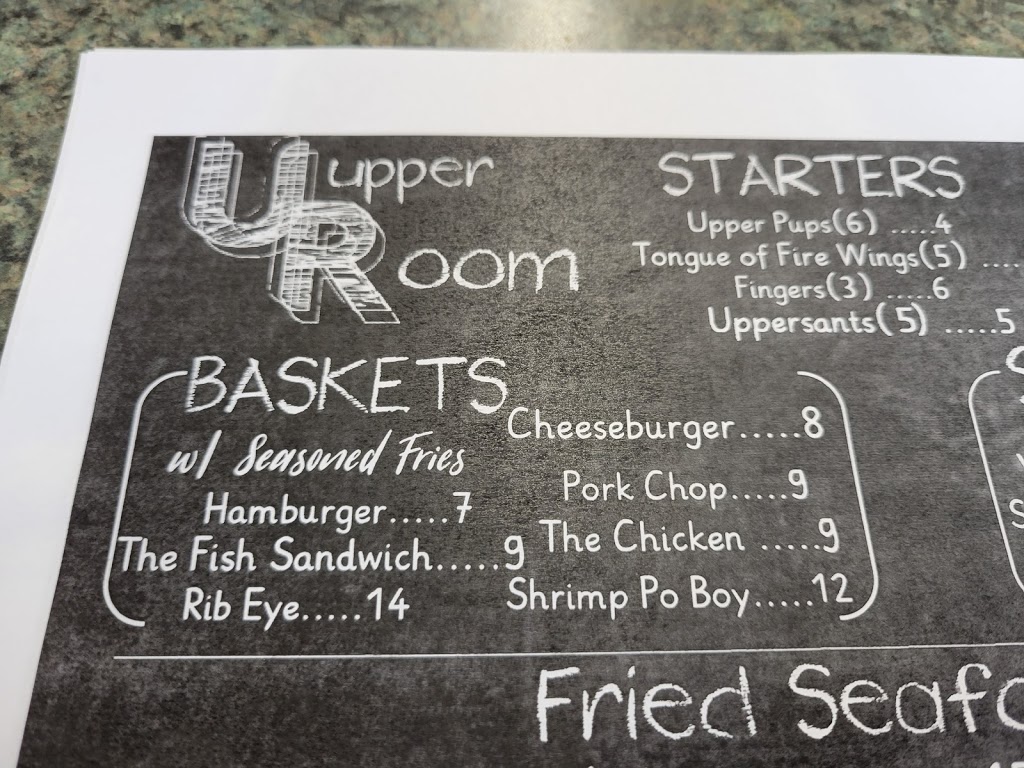 UR upper Room
STARTERS
Upper Pups(6) .....4
Tongue of Fire Wings(5) ....
Fingers(3) .....6
Uppersants(5) .....5
BASKETS
w/ Seasoned Fries
Hamburger.....7
The Fish Sandwich.....9
Rib Eye.....14
Cheeseburger.....8
Pork Chop.....9
The Chicken .....9
Shrimp Po Boy.....12
Fried